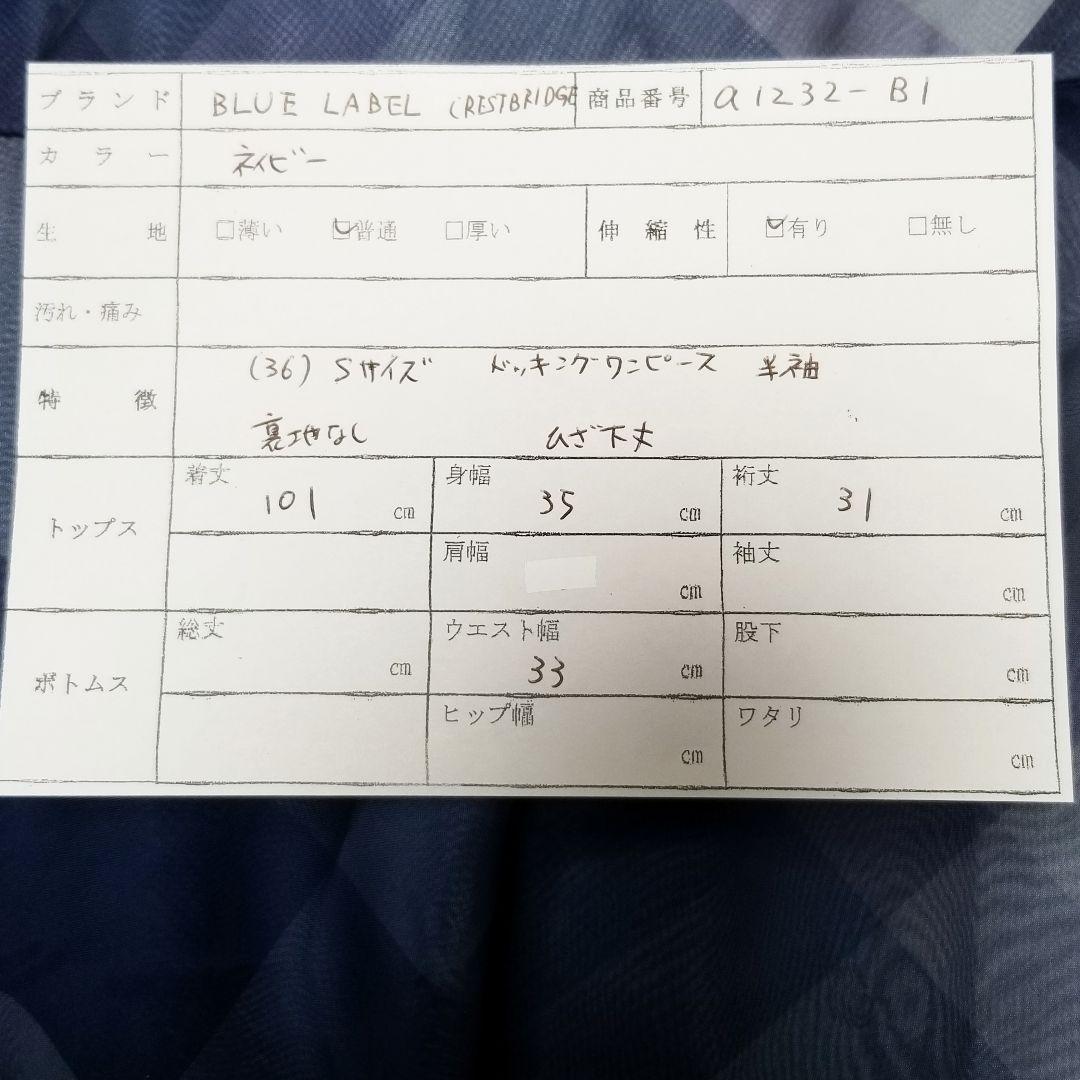 ブランド BLUE LABEL CRESTBRIDGE 商品番号 a1232-B1
カラー ネイビー
生地 □薄い ☑普通 □厚い 伸縮性 ☑有り □無し
汚れ・痛み
特徴 (36) Sサイズ ドッキングワンピース 半袖
裏地なし ひざ下丈
トップス 着丈 101 cm 身幅 35 cm 裄丈 31 cm
肩幅 cm 袖丈 cm
ボトムス 総丈 cm ウエスト幅 33 cm 股下 cm
ヒップ幅 cm ワタリ cm